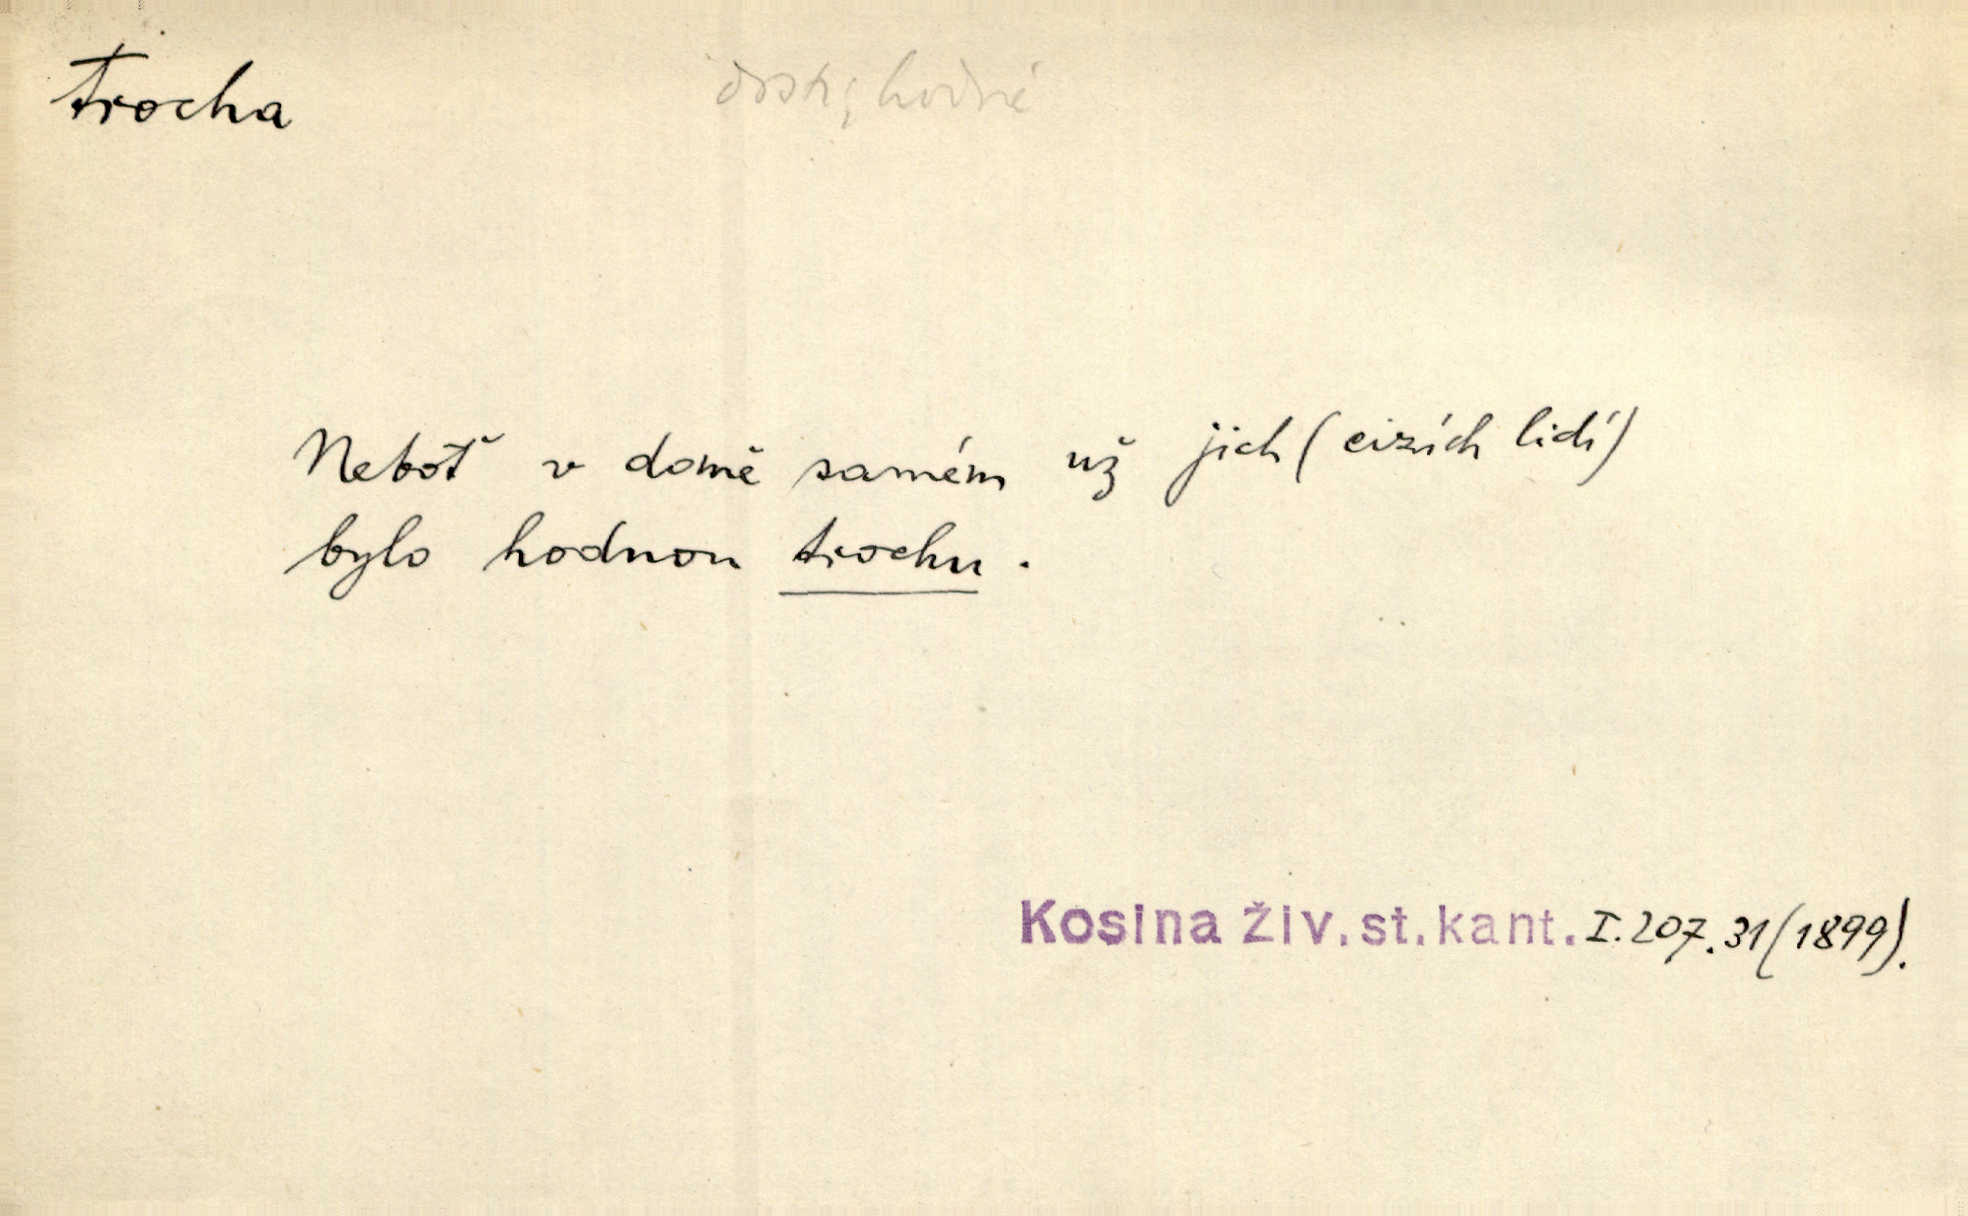 trocha
dosti, hodně
Neboť v domě samém už jich (cizích lidí)
bylo hodnou trochu.
Kosina Živ.st.kant. I.207.31(1899).